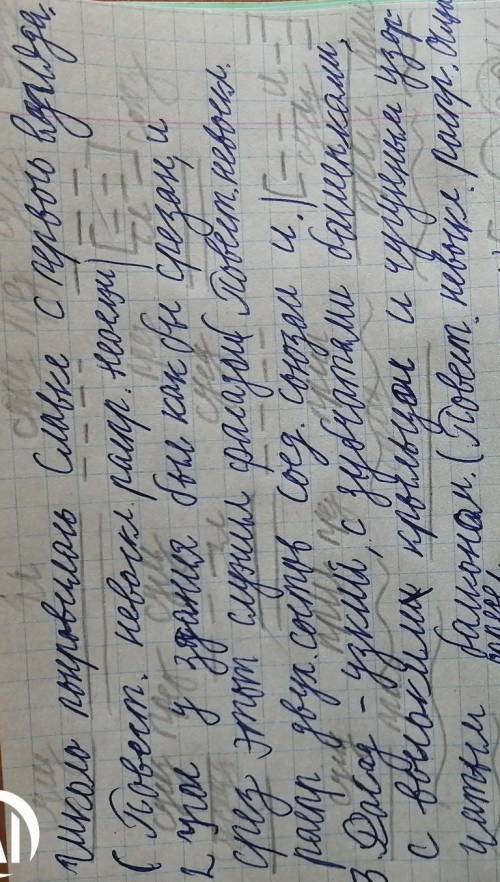 Школа понравилась Славке с первого взгляда.
(Повест. невоскл. распр. неослож) [– =]
2 угол у здания был как бы срезан, и
срез этот служил фасадом (Повест. невоскл.
распр двух. состав соед. союзом и.) [– =] и [– =]
3 Фасад - узкий, с зубчатами башенками,
с высоким крыльцом и чугунным узор-
чатым балконом. (Повест. невоскл. распр.